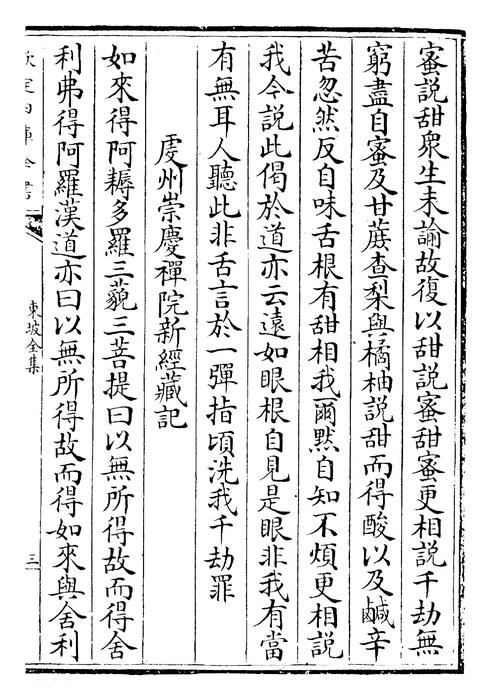 蜜説甜衆生未諭故復以甜説蜜甜蜜更相説千劫無
窮盡自蜜及甘蔗查梨與橘柚説甜而得酸以及鹹辛
苦忽然反自味舌根有甜相我爾黙自知不煩更相説
我今説此偈於道亦云遠如眼根自見是眼非我有當
有無耳人聽此非舌言於一彈指頃洗我千劫罪
虔州崇慶禪院新經藏記
如來得阿耨多羅三藐三菩提曰以無所得故而得舍
利弗得阿羅漢道亦曰以無所得故而得如來與舍利
欽定四庫全書
東坡全集
三